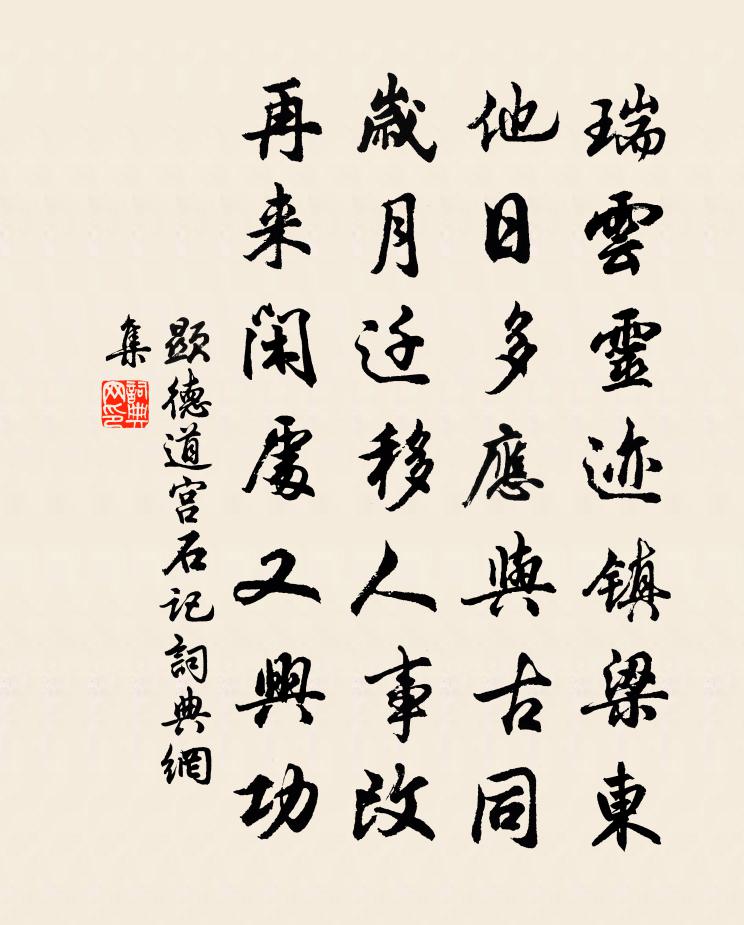 瑞雲靈迹鎮梁東
他日多應與古同
歲月迁移人事改
再来閑處又興功
顯德道宫石記詞典網
集
詞典
网印